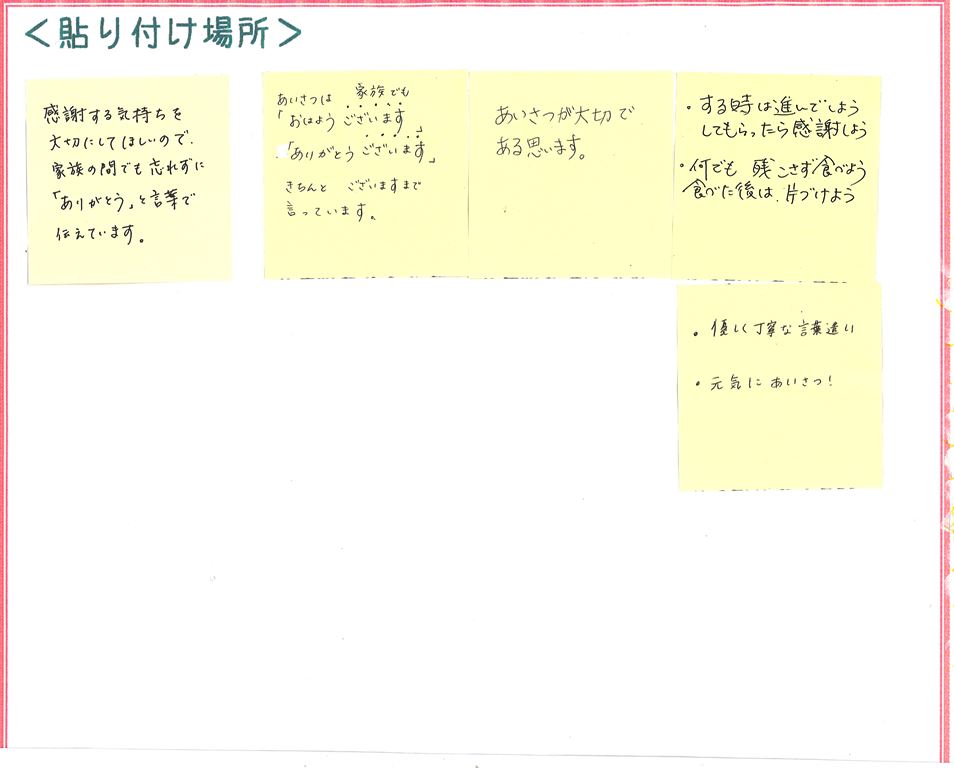 ＜貼り付け場所＞
感謝する気持ちを
大切にしてほしいので、
家族の間でも忘れずに
「ありがとう」と言葉で
伝えています。
あいさつは 家族でも
「おはよう ございます」
「ありがとう ございます」
きちんと ございますまで
言っています。
あいさつが大切で
ある思います。
・する時は進んでしよう
してもらったら感謝しよう
・何でも 残こさず食べよう
食べた後は、片づけよう
・優しく丁寧な言葉遣い
・元気に あいさつ！